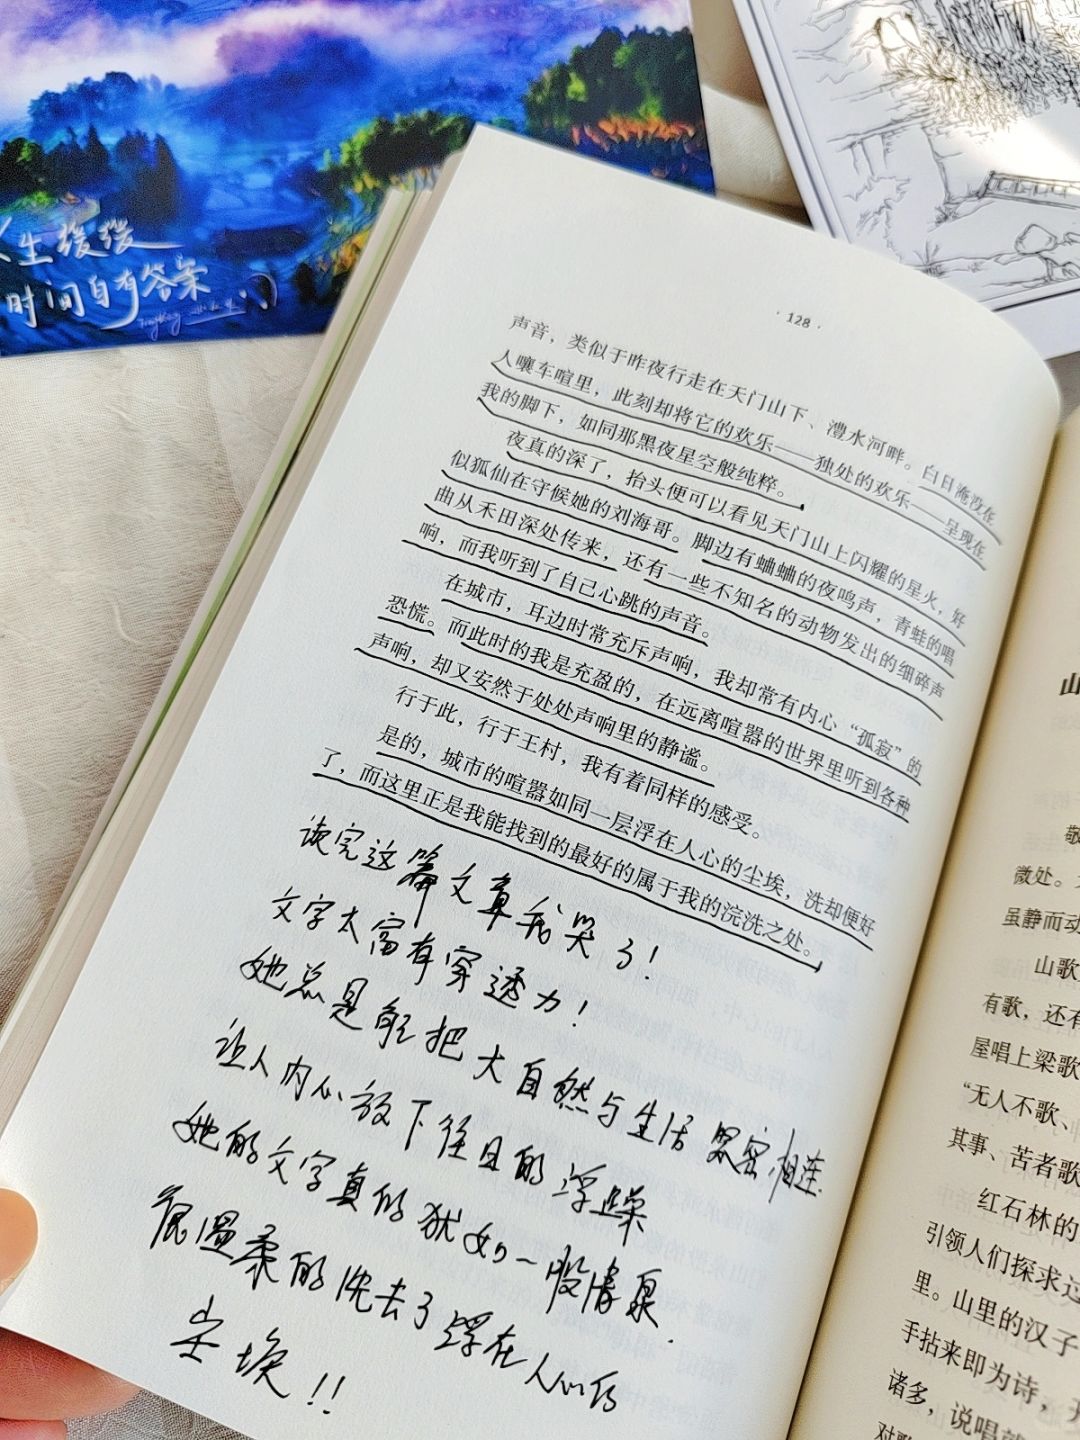 人生缓缓
时间自有答案
· 128 ·
声音，类似于昨夜行走在天门山下、澧水河畔。白日淹没在
人嚷车喧里，此刻却将它的欢乐——独处的欢乐——呈现在
我的脚下，如同那黑夜星空般纯粹。
夜真的深了，抬头便可以看见天门山上闪耀的星火，好
似狐仙在守候她的刘海哥。脚边有蛐蛐的夜鸣声，青蛙的唱
曲从禾田深处传来，还有一些不知名的动物发出的细碎声
响，而我听到了自己心跳的声音。
在城市，耳边时常充斥声响，我却常有内心“孤寂”的
恐慌。而此时的我是充盈的，在远离喧嚣的世界里听到各种
声响，却又安然于处处声响里的静谧。
行于此，行于王村，我有着同样的感受。
是的，城市的喧嚣如同一层浮在人心的尘埃，洗却便好
了，而这里正是我能找到的最好的属于我的浣洗之处。
读完这篇文章我哭了！
文字太富有穿透力！
她总是能把大自然与生活紧密相连.
让人内心放下往日的浮躁
她的文字真的犹如一股清泉.
很温柔的洗去了浮在人们的
尘埃！！
山
敬
微处。
虽静而动
山歌
有歌，还有
屋唱上梁歌
“无人不歌、
其事、苦者歌
红石林的
引领人们探求这
里。山里的汉子
手拈来即为诗，开
诸多，说唱就
对歌